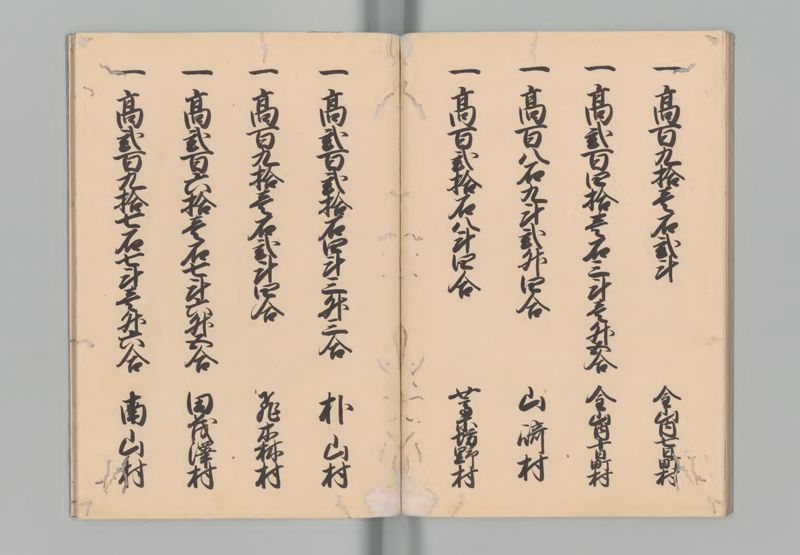 一 高百九拾壱石弐斗
一 高弐百四拾壱石三斗壱升五合
一 高百八石九斗弐升四合 山崎村
一 高百弐拾石八斗四合
一 高弐百弐拾石四斗三升三合 朴山村
一 高百九拾壱石弐斗四合
一 高弐百六拾壱石七斗六升五合 田茂澤村
一 高弐百九拾七石七斗壱升六合 南山村